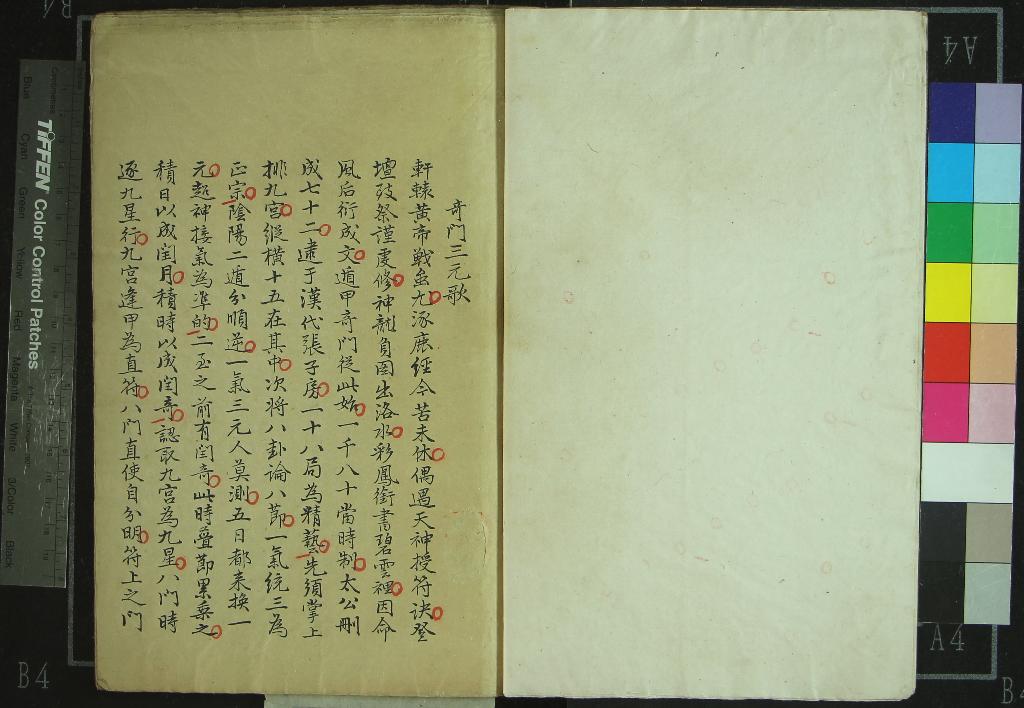 奇門三元歌
軒轅黃帝戰蚩尤涿鹿經今苦未休偶遇天神授符訣登
壇致祭謹虔修神龍負图出洛水彩鳳銜書碧雲裡因命
風后衍成文遁甲奇門從此始一千八十當時制太公刪
成七十二逮于漢代張子房一十八局為精藝先須掌上
排九宮縱橫十五在其中次將八卦論八節一氣統三為
正宗陰陽二遁分順逆一氣三元人莫測五日都来換一
元超神接氣為準的二至之前有闰奇此時疊節累乗之
積日以成闰月積時以成闰奇認取九宮為九星八門時
逐九星行九宮逢甲為直符八門直使自分明符上之門
TIFFEN Color Control Patches
Blue
Cyan
Green
Yellow
Red
Magenta
White
3/Color
Black
B4
A4
A4
B4